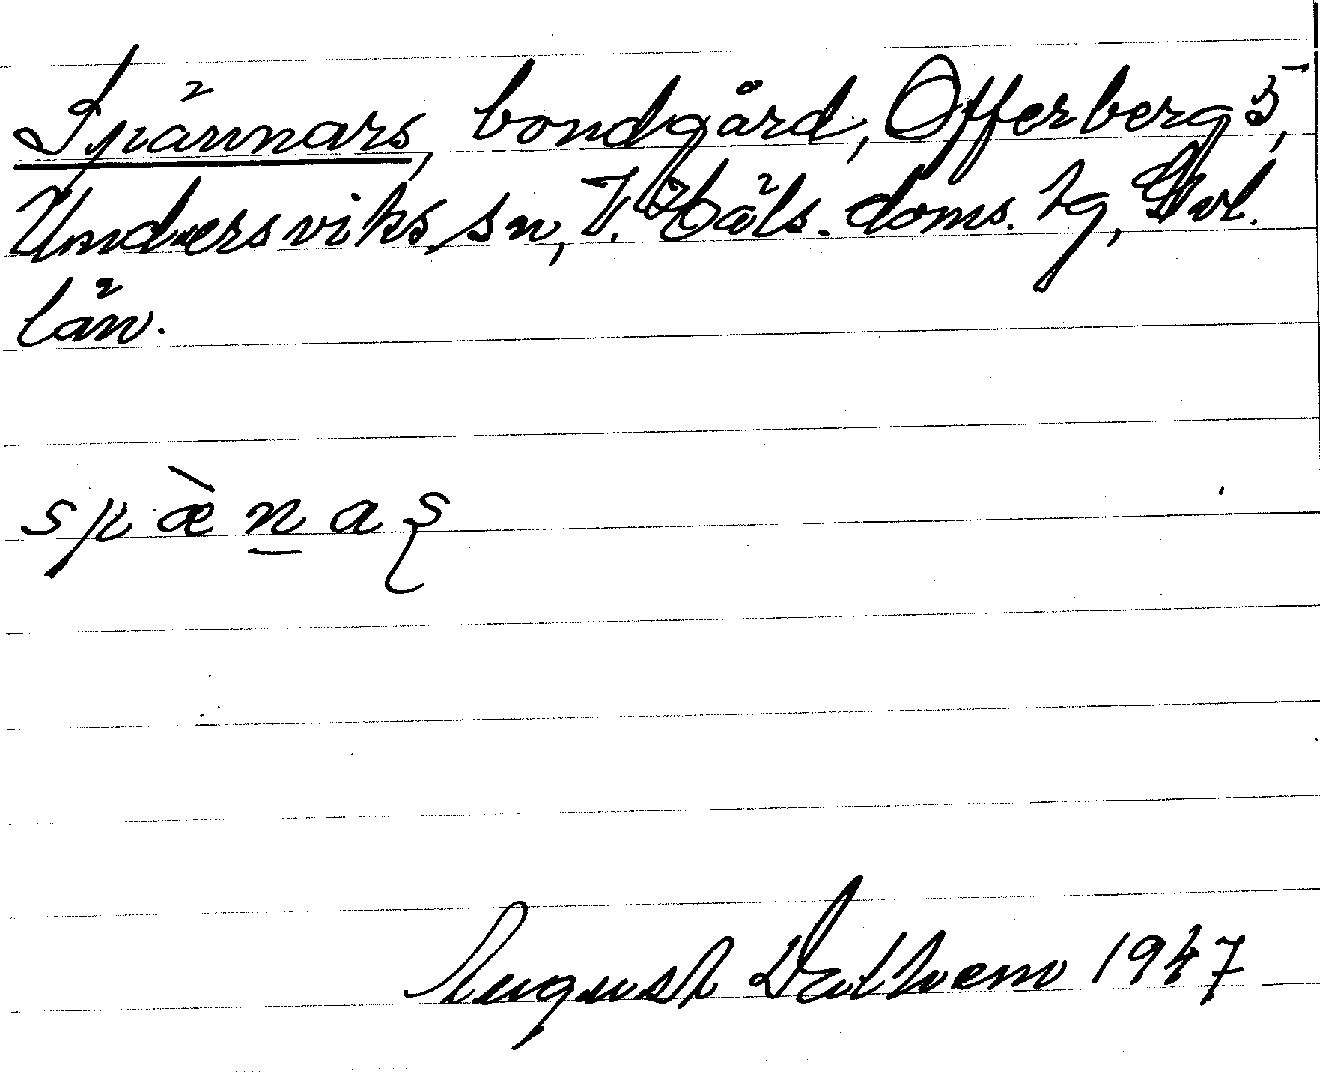 Spännars, bondgård, Offerberg 5,
Undersviks sn, V. Häls. doms. tg, Gvl.
län.
spæ̀n̲aʂ
August 1947